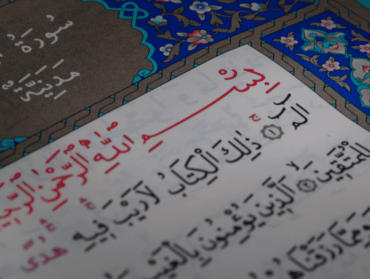 سُورَةُ
مَدَنِيَّةٌ
بِسْمِ اللَّهِ الرَّحْمٰنِ
الٓمٓ ۝ ذٰلِكَ الْكِتَابُ لَا رَيْبَ فِيهِ هُدًى
لِلْمُتَّقِينَ ۝ الَّذِينَ يُؤْمِنُونَ بِالْغَيْبِ
وَمِمَّا رَزَقْنَاهُمْ